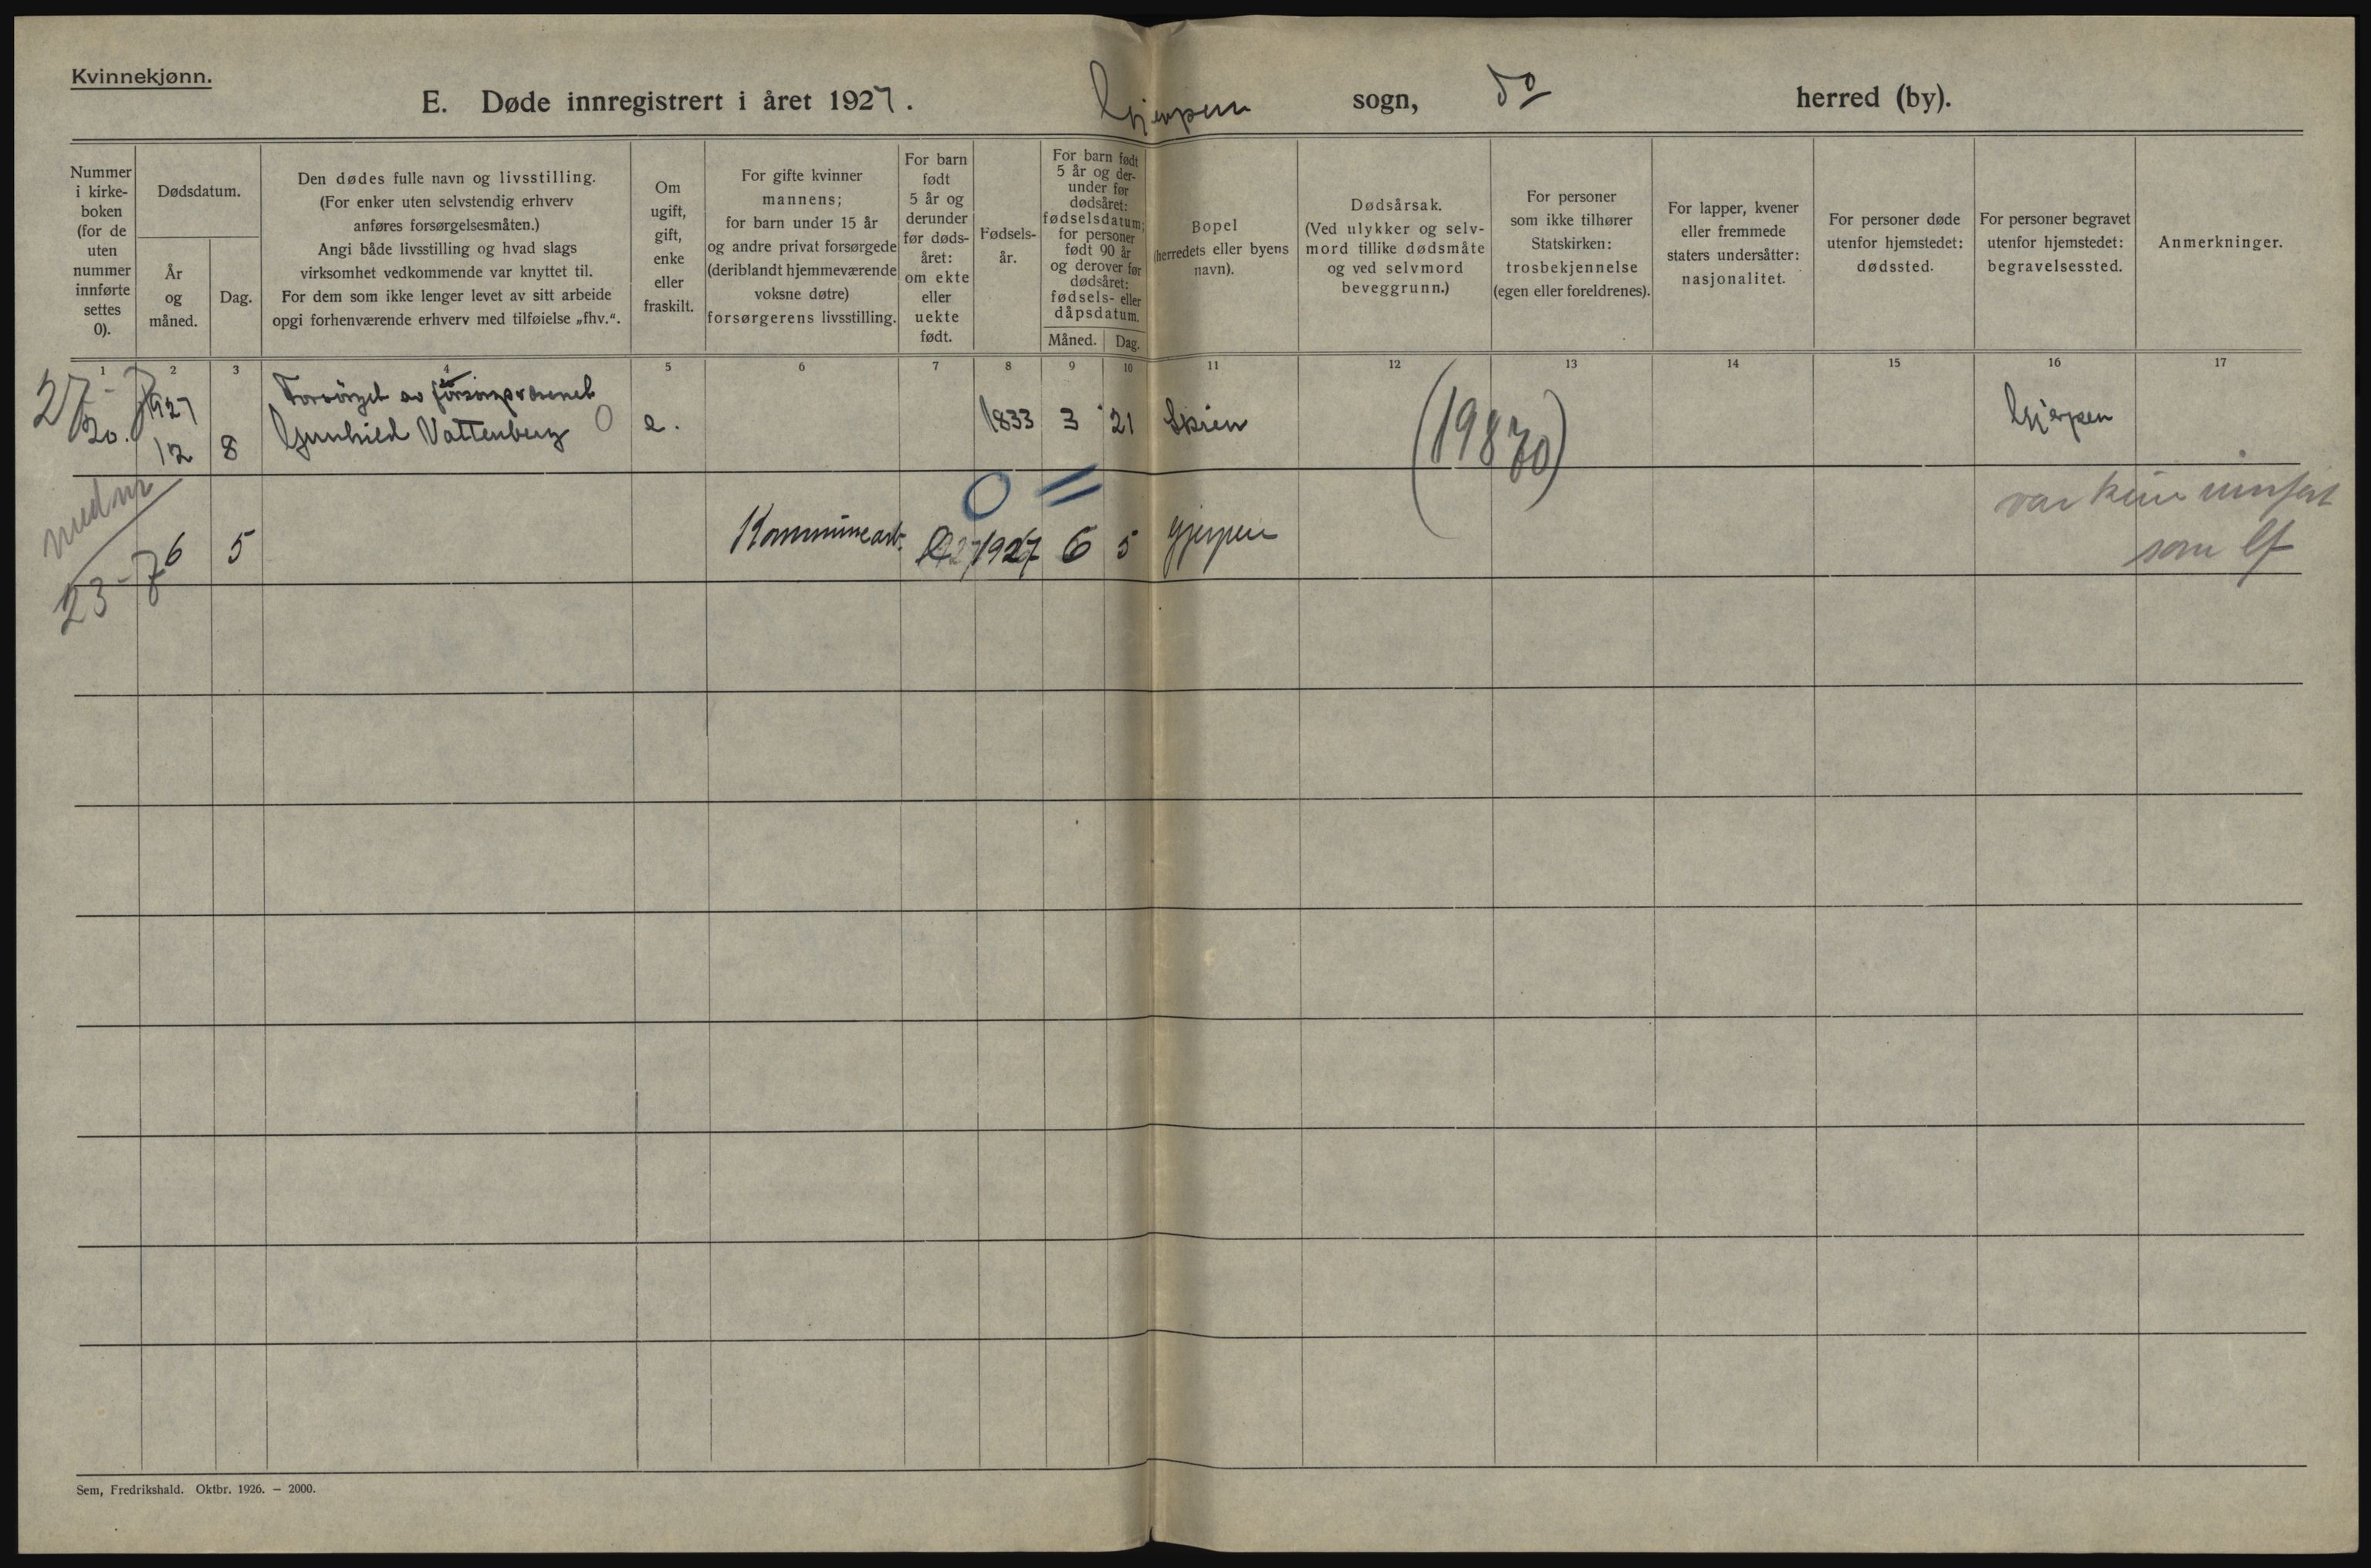 Kvinnekjønn.
E. Døde innregistrert i året 1927. Gjerpen sogn, do herred (by).
Nummer
i kirke-
boken
(for de
uten
nummer
innførte
settes
0).
Dødsdatum.
År
og
måned.
Dag.
Den dødes fulle navn og livsstilling.
(For enker uten selvstendig erhverv
anføres forsørgelsesmåten.)
Angi både livsstilling og hvad slags
virksomhet vedkommende var knyttet til.
For dem som ikke lenger levet av sitt arbeide
opgi forhenværende erhverv med tilføielse „fhv.“.
Om
ugift,
gift,
enke
eller
fraskilt.
For gifte kvinner
mannens;
for barn under 15 år
og andre privat forsørgede
(deriblandt hjemmeværende
voksne døtre)
forsørgerens livsstilling.
For barn
født
5 år og
derunder
før døds-
året:
om ekte
eller
uekte
født.
Fødsels-
år.
For barn født
5 år og der-
under før
dødsåret:
fødselsdatum;
for personer
født 90 år
og derover før
dødsåret:
fødsels- eller
dåpsdatum.
Måned. Dag.
Bopel
(herredets eller byens
navn).
Dødsårsak.
(Ved ulykker og selv-
mord tillike dødsmåte
og ved selvmord
beveggrunn.)
For personer
som ikke tilhører
Statskirken:
trosbekjennelse
(egen eller foreldrenes).
For lapper, kvener
eller fremmede
staters undersåtter:
nasjonalitet.
For personer døde
utenfor hjemstedet:
dødssted.
For personer begravet
utenfor hjemstedet:
begravelsessted.
Anmerkninger.
1 2 3 4 5 6 7 8 9 10 11 12 13 14 15 16 17
27-7
Forsörget av forsorgsvæsenet
20. 1927 12 8 Gunhild Vattenberg 0 e. 1833 3 21 Skien (19870) Gjerpen
0 =
6 5 Kommunearb. 1927 6 5 Gjerpen
var kun innført
som lf
23-7
Sem, Fredrikshald. Oktbr. 1926. — 2000.